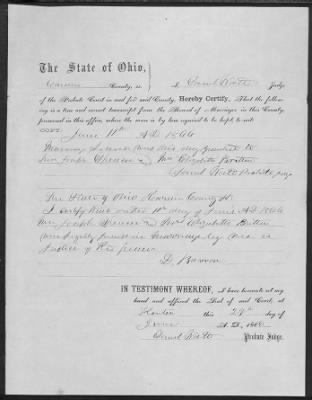 The State of Ohio,
County, ss. I, Judge
of the Probate Court in and for said County, Hereby Certify, That the follow-
ing is a true and correct transcript from the Record of Marriages in this County
preserved in this office, where the same is by law required to be kept, to wit:
COPY. June 11th AD 1866
Marriage License was this day granted to
Mr Joseph Spencer & Mrs Elizabeth
Probate Judge
The State of Ohio County SS
I certify that on the 11th day of June AD 1866
Mr Joseph Spencer and Mrs Elizabeth
were legally joined in marriage by me a
Justice of the peace
IN TESTIMONY WHEREOF, I have hereunto set my
hand and affixed the Seal of said Court, at
this 29th day of
June A. D. 1866
Probate Judge.